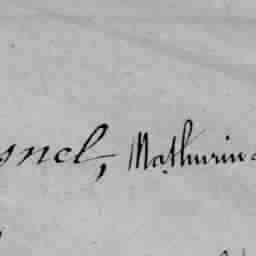 gnel, Mathurin